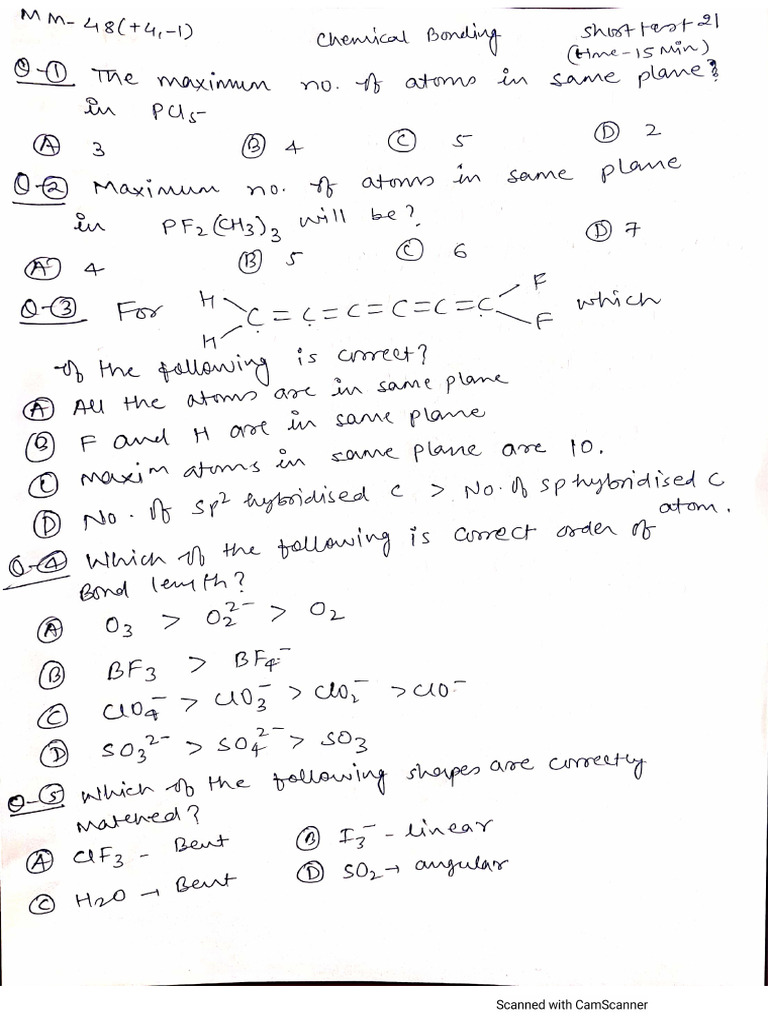 MM-48(+4,-1)
Chemical Bonding
Short test 21
(time-15 Min)
Q-① The maximum no. of atoms in same plane?
in PCl5
Ⓐ 3 Ⓑ 4 Ⓒ 5 Ⓓ 2
Q-② Maximum no. of atoms in same plane
in PF₂(CH₃)₃ will be?
Ⓐ 4 Ⓑ 5 Ⓒ 6 Ⓓ 7
Q-③ For H H C=C=C=C=C=C F F which
of the following is correct?
Ⓐ All the atoms are in same plane
Ⓑ F and H are in same plane
Ⓒ Maxim atoms in same plane are 10.
Ⓓ No. of sp² hybridised C > No. of sp hybridised C
atom.
Q-④ Which of the following is correct order of
Bond length?
Ⓐ O₃ > O₂²⁻ > O₂
Ⓑ BF₃ > BF₄⁻
Ⓒ ClO₄⁻ > ClO₃⁻ > ClO₂⁻ > ClO⁻
Ⓓ SO₃²⁻ > SO₄²⁻ > SO₃
Q-⑤ Which of the following shapes are correctly
Matched?
Ⓐ ClF₃ - Bent Ⓑ I₃⁻ - linear
Ⓒ H₂O → Bent Ⓓ SO₂ → angular
Scanned with CamScanner